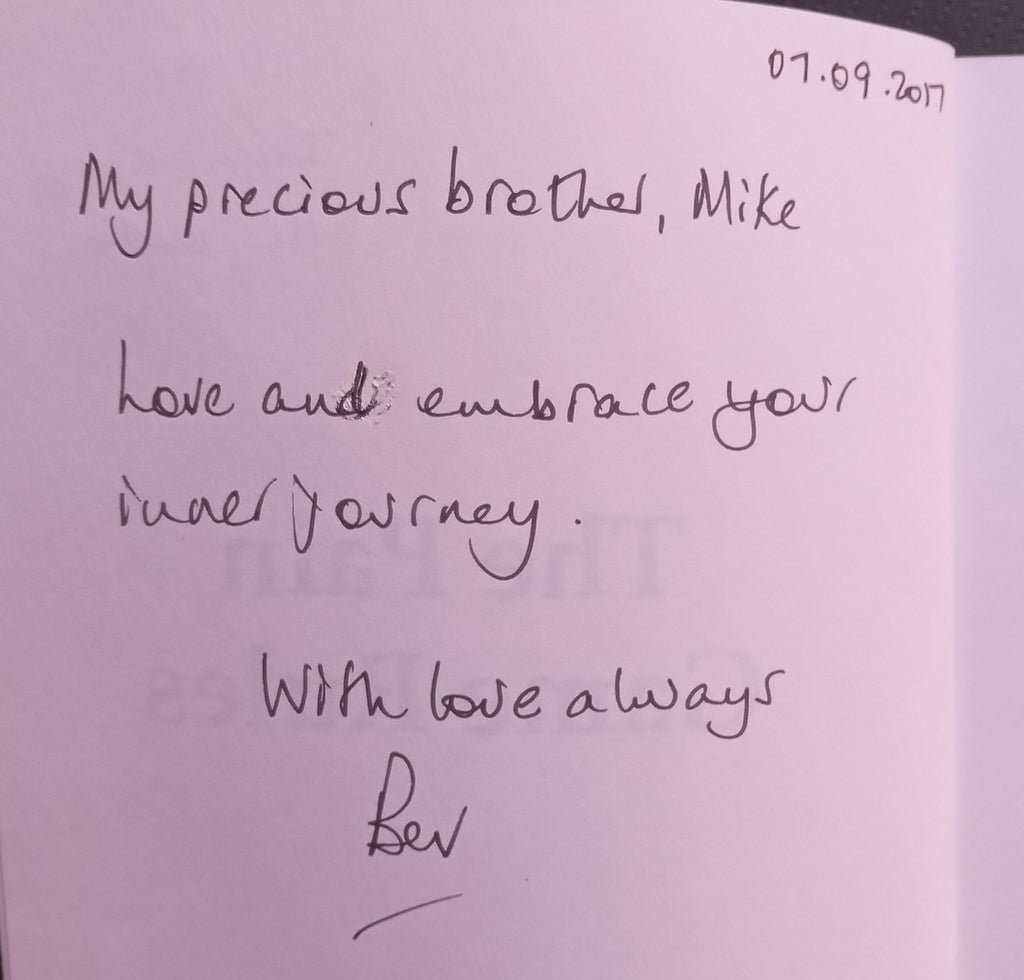 07.09.2017
My precious brother, Mike
Love and embrace your
inner journey.
With love always
Bev